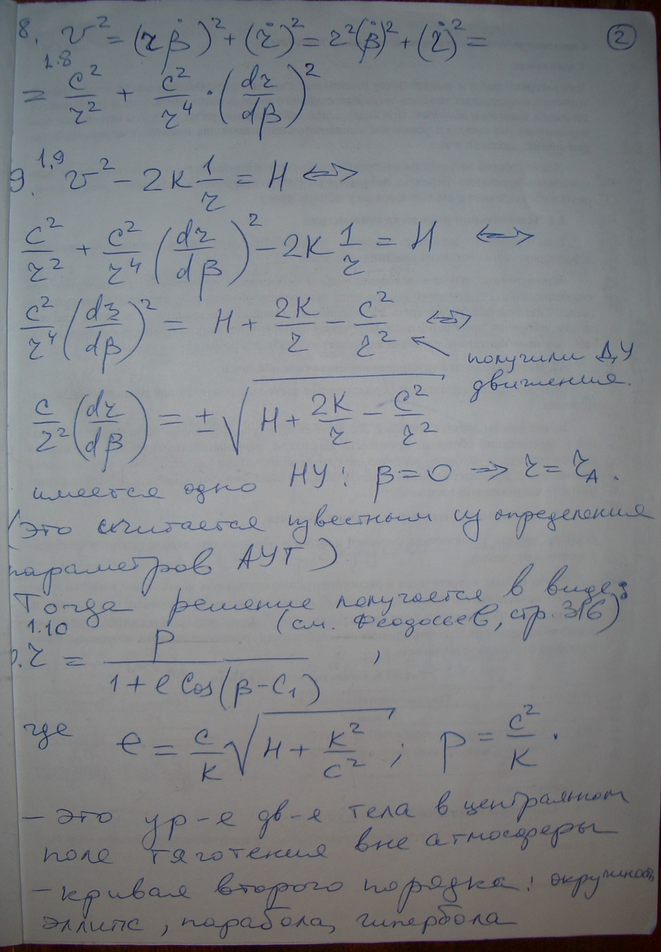 ②
8. v² = (rβ̇)² + (ṙ)² = r²(β̇)² + (ṙ)² =
1.8
= c²/r² + c²/r⁴ · (dr/dβ)²
1.9
9. v² − 2K 1/r = H ⟺
c²/r² + c²/r⁴ (dr/dβ)² − 2K 1/r = H ⟺
c²/r⁴ (dr/dβ)² = H + 2K/r − c²/r² ⟺
получили ДУ
движения.
c/r² (dr/dβ) = ±√(H + 2K/r − c²/r²)
имеется одно НУ: β=0 ⇒ r=r_A.
(это считается известным из определения
параметров АУТ)
Тогда решение получается в виде:
(см. Феодосьев, стр. 316)
1.10
. r = p/(1+e Cos(β−C₁)) ,
где e = c/K √(H + K²/c²) ; p = c²/K .
– это ур-е дв-я тела в центральном
поле тяготения вне атмосферы
– кривая второго порядка: окружность
эллипс, парабола, гипербола